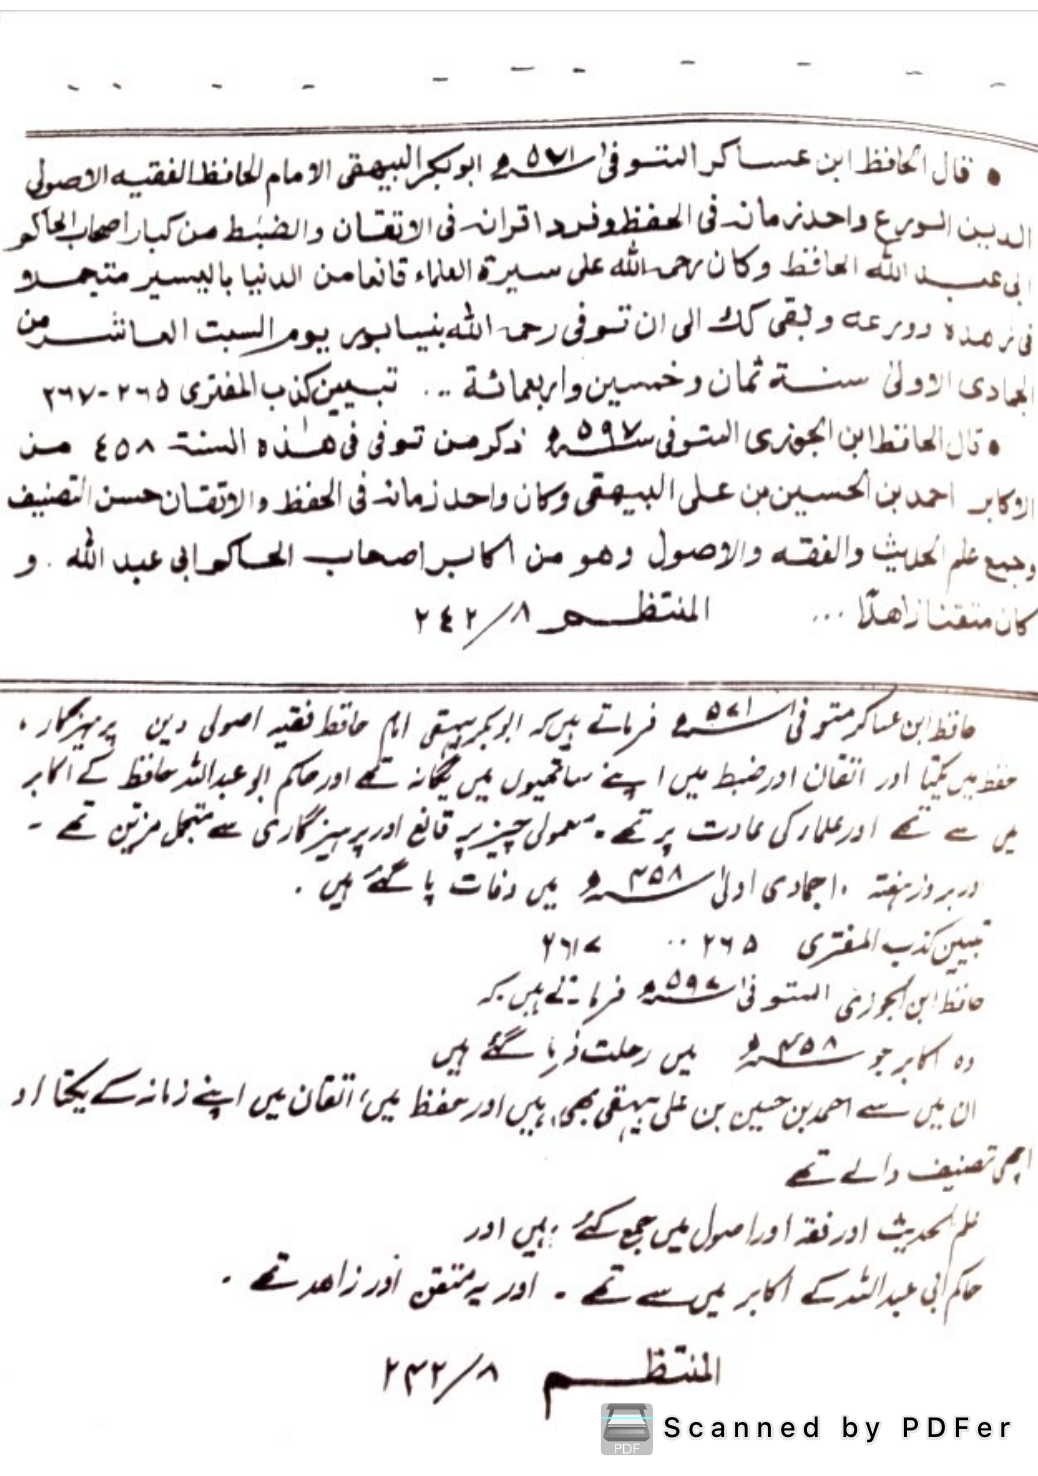 • قال الحافظ ابن عساكر المتوفى ٥٧١ھ ابوبكر البيهقى الامام الحافظ الفقيه الاصولى
الدين الورع واحد زمانه فى الحفظ وفرد اقرانه فى الاتقان والضبط من كبار اصحاب الحاكم
ابى عبد الله الحافظ وكان رحمه الله على سيرة العلماء قانعا من الدنيا باليسير متجملا
فى زهده وورعه وبقى كك الى ان توفى رحمه الله بنيسابور يوم السبت العاشر من
الجمادى الاولىٰ سنة ثمان وخمسين واربعمائة ... تبيين كذب المفترى ٢٦٥-٢٦٧
• قال الحافظ ابن الجوزى المتوفى ٥٩٧ھ ذكر من توفى فى هٰذه السنة ٤٥٨ من
الاكابر احمد بن الحسين بن على البيهقى وكان واحد زمانه فى الحفظ والاتقان حسن التصنيف
وجمع علم الحديث والفقه والاصول وهو من اكابر اصحاب الحاكم ابى عبد الله . و
كان متقنا زاهدًا ... المنتظم ٨/٢٤٢
حافظ ابن عساکر متوفی ۵۷۱ھ فرماتے ہیں کہ ابوبکر بیہقی امام حافظ فقیہ اصولی دین پرہیزگار ،
حفظ میں یکتا اور اتقان اور ضبط میں اپنے ساتھیوں میں یگانہ تھے اور حاکم ابو عبداللہ حافظ کے اکابر
میں سے تھے اور علماء کی عادت پر تھے ۔ معمولی چیز پر قانع اور پرہیزگاری سے متجمل مزین تھے ۔
اور بروز ہفتہ ۱۰ جمادی اولیٰ ۴۵۸ھ میں وفات پا گئے ہیں .
تبیین کذب المفتری ۲۶۵ .. ۲۶۷
حافظ ابن الجوزی المتوفی ۵۹۷ھ فرماتے ہیں کہ
وہ اکابر جو ۴۵۸ھ میں رحلت فرما گئے ہیں
ان میں سے احمد بن حسین بن علی بیہقی بھی ہیں اور حفظ میں، اتقان میں اپنے زمانہ کے یکتا او
اچھی تصنیف والے تھے
علم الحدیث اور فقہ اور اصول میں جمع کئے ہیں اور
حاکم ابی عبداللہ کے اکابر میں سے تھے ۔ اور یہ متقن اور زاھد تھے .
المنتظم ۸/۲۴۲
PDF
Scanned by PDFer